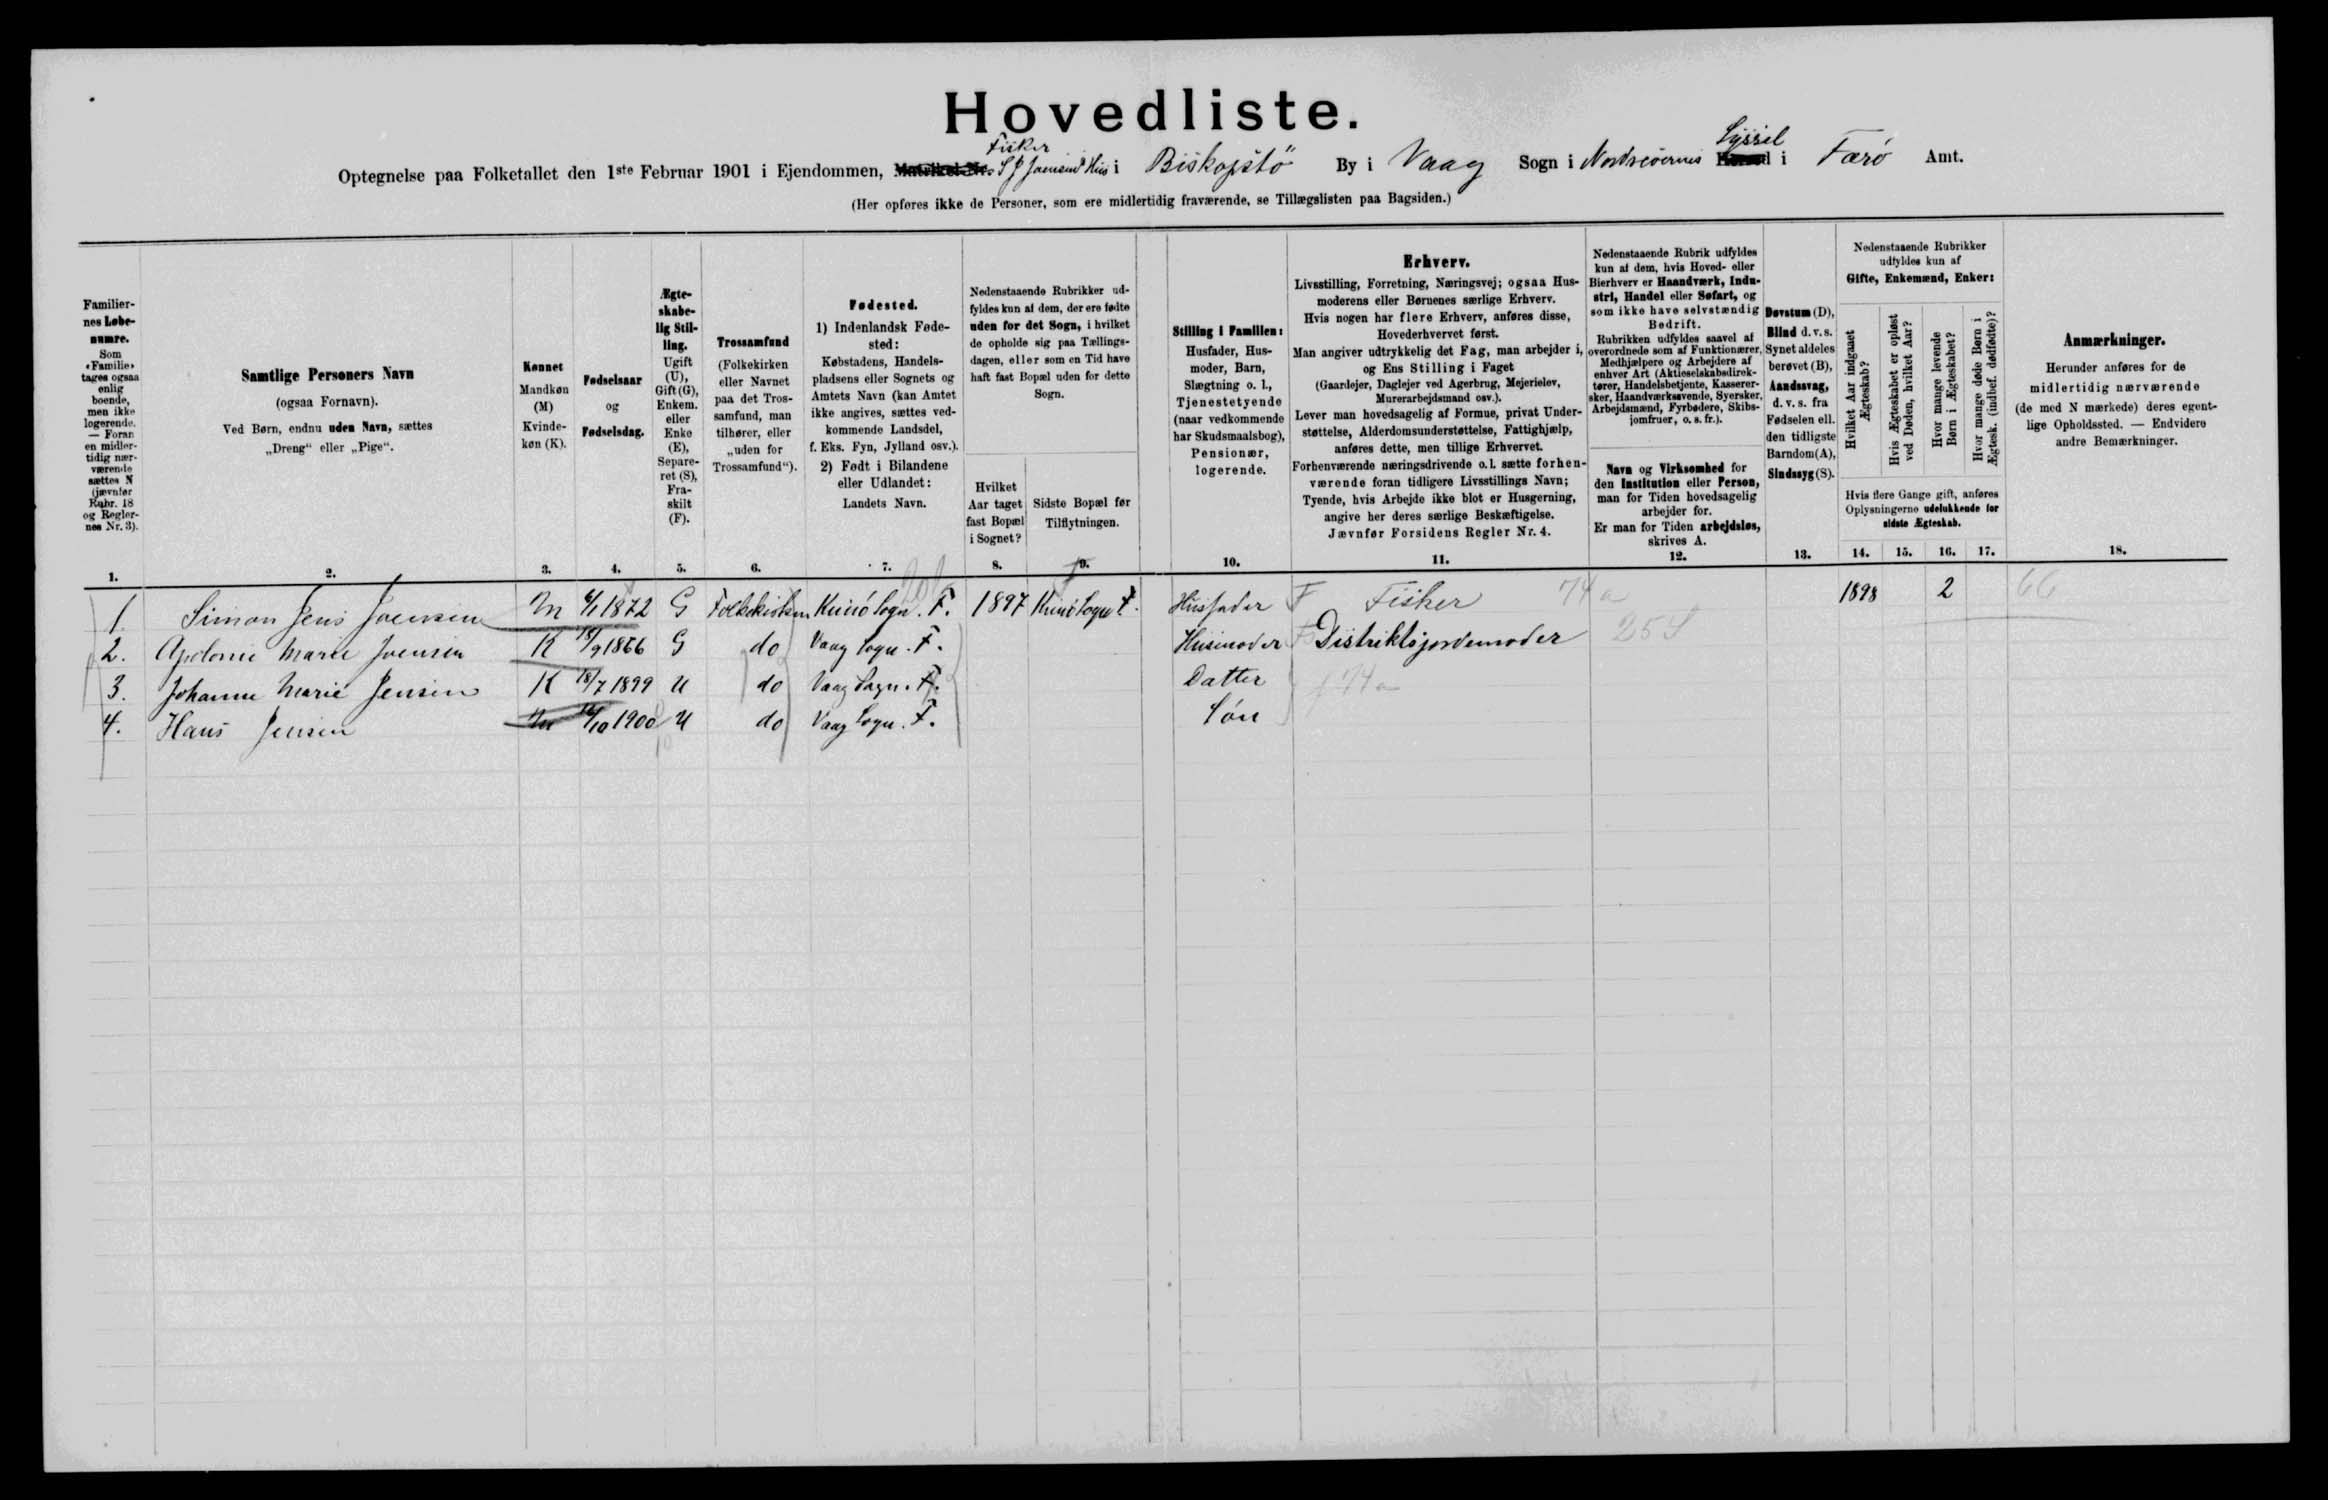 Hovedliste.
Optegnelse paa Folketallet den 1ste Februar 1901 i Ejendommen, Matrikel-Nr. Fisker S J Joensens Hus i Biskopstö By i Vaag Sogn i Nordreöernes Herred Syssel i Færö Amt.
(Her opføres ikke de Personer, som ere midlertidig fraværende, se Tillægslisten paa Bagsiden.)
Familiernes Løbenumre.
Som «Familie» tages ogsaa enlig boende, men ikke logerende. — Foran en midlertidig nærværende sættes N (jævnfør Rubr. 18 og Reglernes Nr. 3).
Samtlige Personers Navn
(ogsaa Fornavn).
Ved Børn, endnu uden Navn, sættes
„Dreng“ eller „Pige“.
Kønnet
Mandkøn (M)
Kvindekøn (K).
Fødselsaar
og
Fødselsdag.
Ægteskabelig Stilling.
Ugift (U), Gift (G), Enkem. eller Enke (E), Separeret (S), Fraskilt (F).
Trossamfund
(Folkekirken eller Navnet paa det Trossamfund, man tilhører, eller „uden for Trossamfund“).
Fødested.
1) Indenlandsk Fødested:
Købstadens, Handelspladsens eller Sognets og Amtets Navn (kan Amtet ikke angives, sættes vedkommende Landsdel, f. Eks. Fyn, Jylland osv.).
2) Født i Bilandene eller Udlandet:
Landets Navn.
Nedenstaaende Rubrikker udfyldes kun af dem, der ere fødte uden for det Sogn, i hvilket de opholde sig paa Tællingsdagen, eller som en Tid have haft fast Bopæl uden for dette Sogn.
Hvilket Aar taget fast Bopæl i Sognet?
Sidste Bopæl før Tilflytningen.
Stilling i Familien:
Husfader, Husmoder, Barn, Slægtning o. l., Tjenestetyende (naar vedkommende har Skudsmaalsbog), Pensionær, logerende.
Erhverv.
Livsstilling, Forretning, Næringsvej; ogsaa Husmoderens eller Børnenes særlige Erhverv.
Hvis nogen har flere Erhverv, anføres disse, Hovederhvervet først.
Man angiver udtrykkelig det Fag, man arbejder i, og Ens Stilling i Faget
(Gaardejer, Daglejer ved Agerbrug, Mejerielev, Murerarbejdsmand osv.).
Lever man hovedsagelig af Formue, privat Understøttelse, Alderdomsunderstøttelse, Fattighjælp, anføres dette, men tillige Erhvervet.
Forhenværende næringsdrivende o. l. sætte forhenværende foran tidligere Livsstillings Navn;
Tyende, hvis Arbejde ikke blot er Husgerning, angive her deres særlige Beskæftigelse.
Jævnfør Forsidens Regler Nr. 4.
Nedenstaaende Rubrik udfyldes kun af dem, hvis Hoved- eller Bierhverv er Haandværk, Industri, Handel eller Søfart, og som ikke have selvstændig Bedrift.
Rubrikken udfyldes saavel af overordnede som af Funktionærer, Medhjælpere og Arbejdere af enhver Art (Aktieselskabsdirektører, Handelsbetjente, Kasserersker, Haandværkssvende, Syersker, Arbejdsmænd, Fyrbødere, Skibsjomfruer, o. s. fr.).
Navn og Virksomhed for den Institution eller Person, man for Tiden hovedsagelig arbejder for.
Er man for Tiden arbejdsløs, skrives A.
Døvstum (D), Blind d. v. s. Synet aldeles berøvet (B), Aandssvag, d. v. s. fra Fødselen ell. den tidligste Barndom (A), Sindssyg (S).
Nedenstaaende Rubrikker udfyldes kun af
Gifte, Enkemænd, Enker:
Hvilket Aar indgaaet Ægteskab?
Hvis Ægteskabet er opløst ved Døden, hvilket Aar?
Hvor mange levende Børn i Ægteskabet?
Hvor mange døde Børn i Ægtesk. (indbef. dødfødte)?
Hvis flere Gange gift, anføres Oplysningerne udelukkende for sidste Ægteskab.
Anmærkninger.
Herunder anføres for de midlertidig nærværende (de med N mærkede) deres egentlige Opholdssted. — Endvidere andre Bemærkninger.
1. 2. 3. 4. 5. 6. 7. 8. 9. 10. 11. 12. 13. 14. 15. 16. 17. 18.
1. Simon Jens Joensen M 6/1 1872 G Folkekirken Kunö Sogn. F. 1897 Kunö Sogn F. Husfader F Fisker 74a 1898 2 66
2. Apolonie Marie Joensen K 1866 G do Vaag Sogn. F. Husmoder Distriktsjordemoder 25
3. Johanne Marie Jensen K 18/7 1899 U do Vaag Sogn. F. Datter 74a
4. Hans Jensen M 1900 U do Vaag Sogn. F. Sön